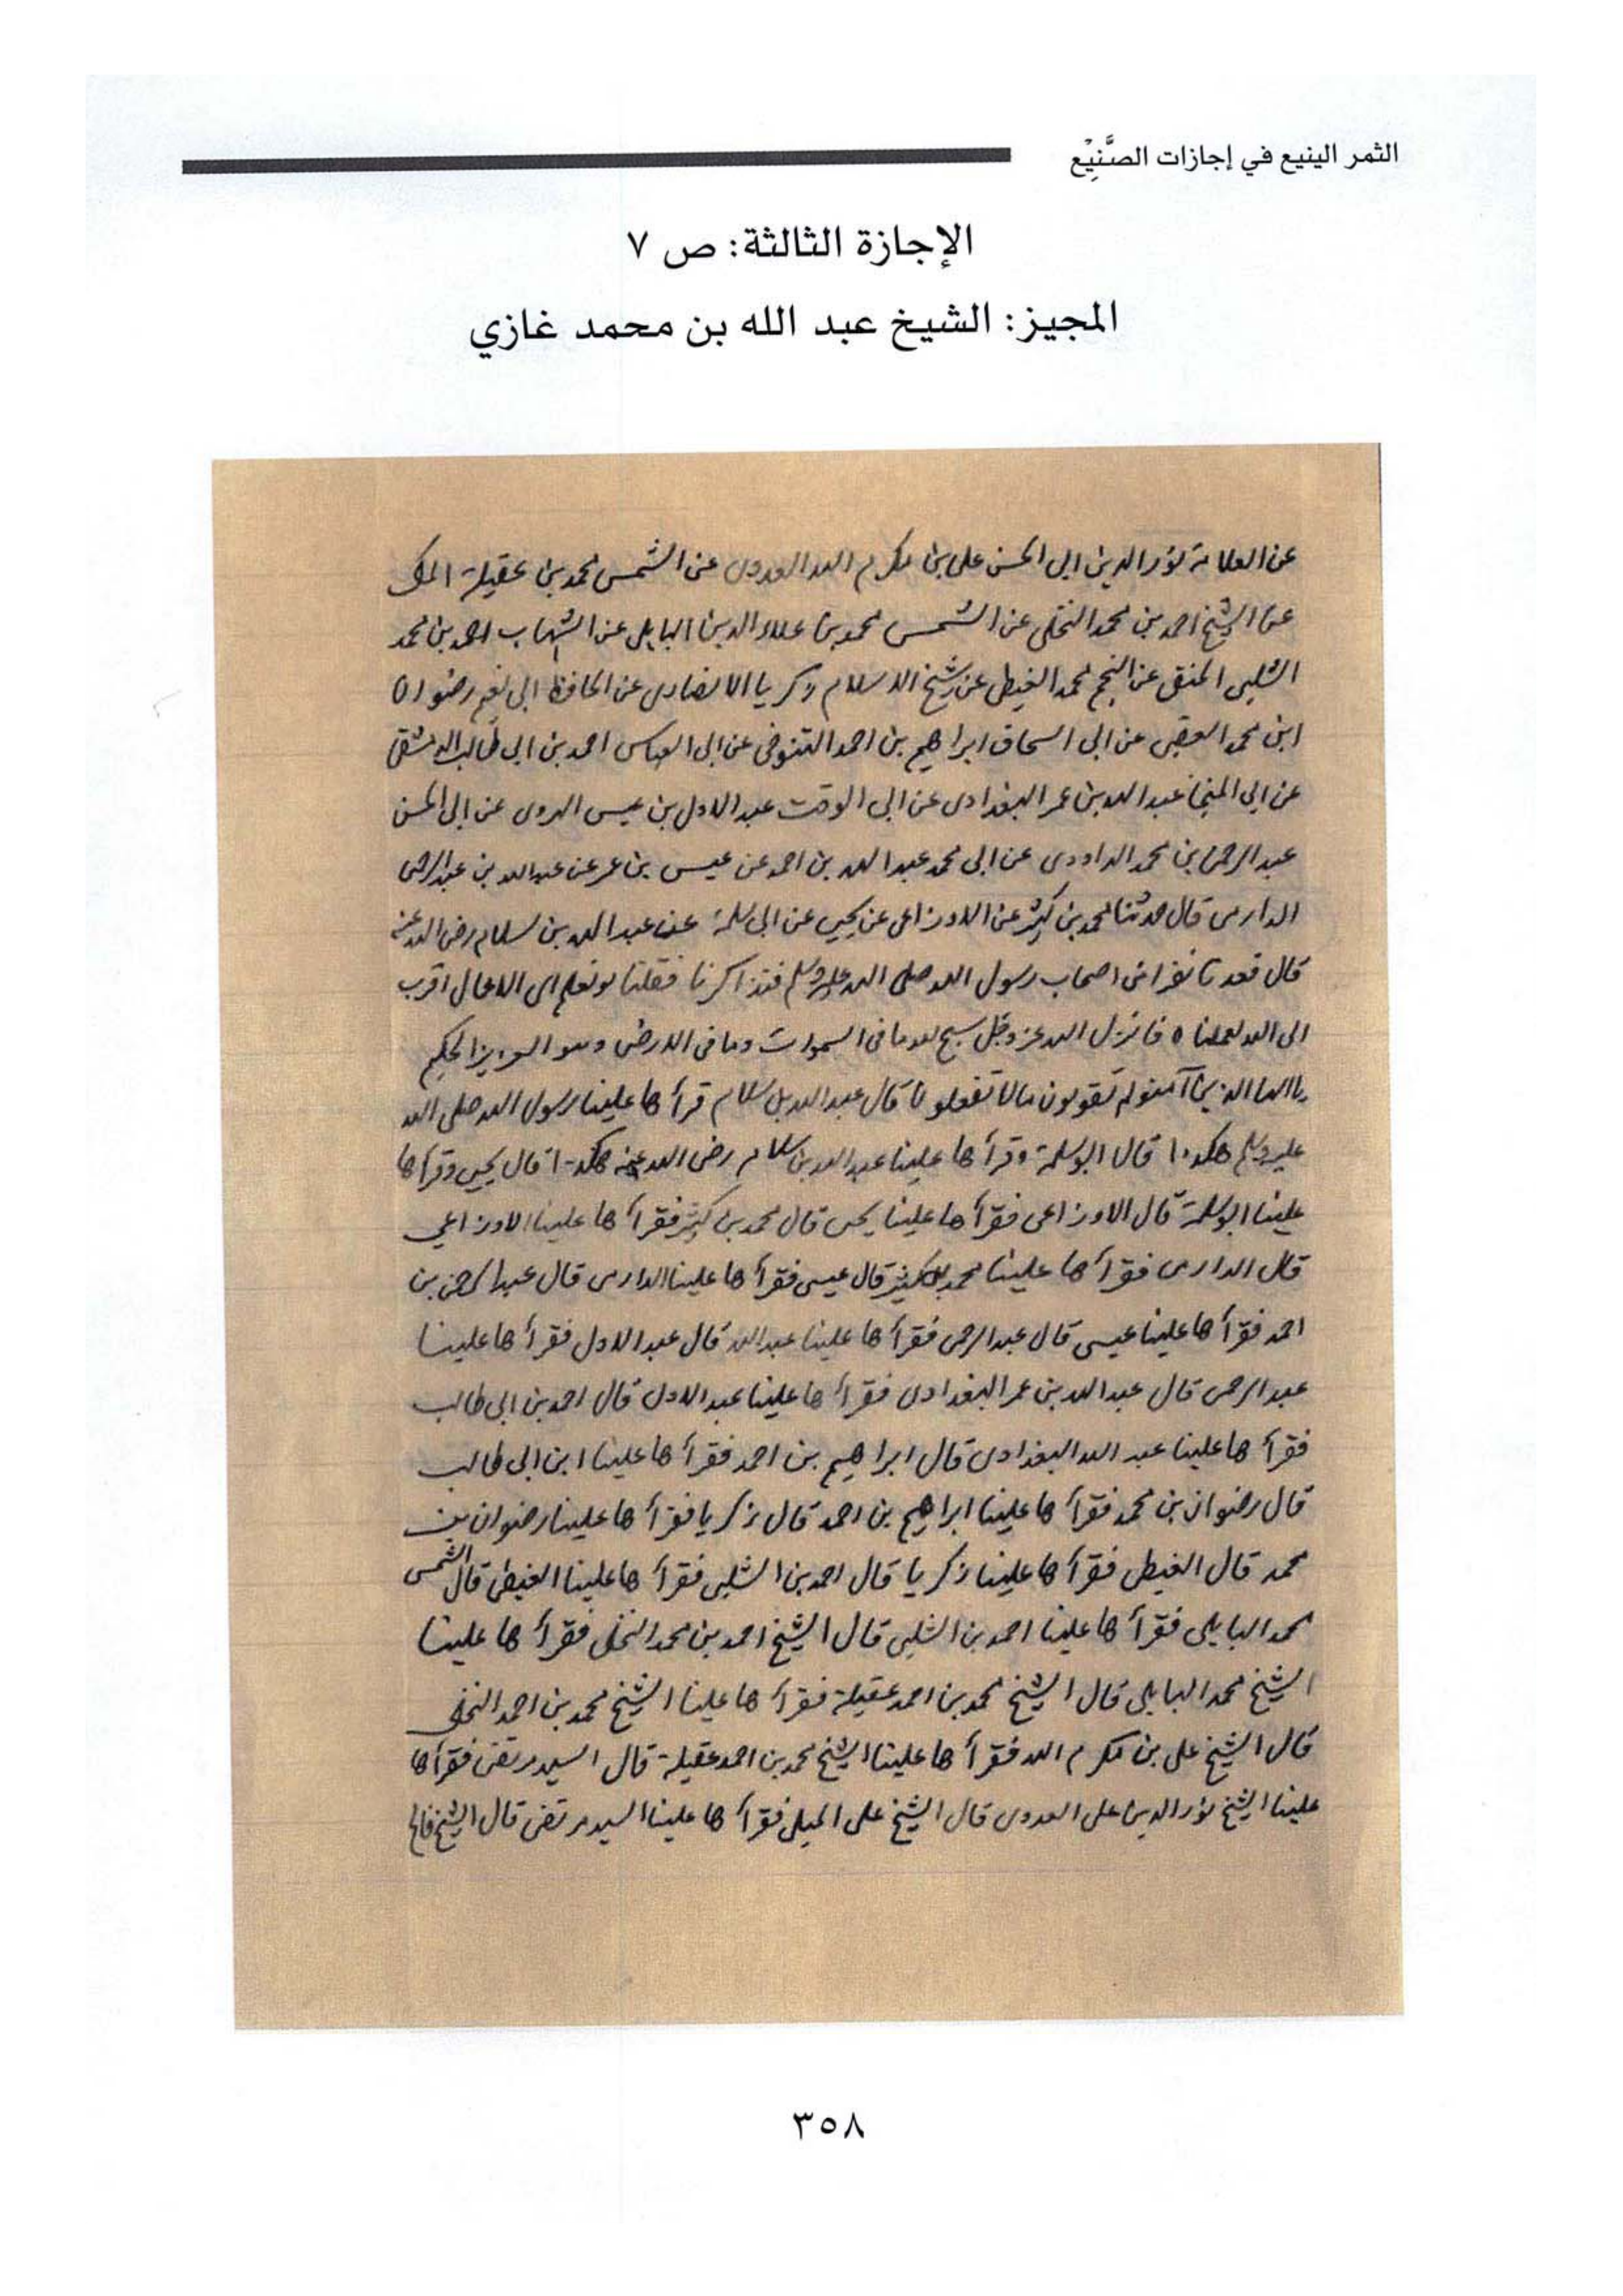 الثمر الينيع في إجازات الصَّنِيْع
الإجازة الثالثة: ص ٧
المجيز: الشيخ عبد الله بن محمد غازي
عن العلامة نور الدين ابي الحسن علي بن مكرم الله العدوى عن الشمس محمد بن عقيلة المكي
عن الشيخ احمد بن محمد النخلى عن الشمس محمد بن علاء الدين البابلى عن الشهاب احمد بن محمد
الشلبى الحنفى عن النجم محمد الغيطى عن شيخ الاسلام زكريا الانصارى عن الحافظ ابى نعيم رضوان
ابن محمد العقبى عن ابى اسحاق ابراهيم بن احمد التنوخى عن ابى العباس احمد بن ابى طالب الدمشقى
عن ابي المنجا عبد الله بن عمر البغدادى عن ابى الوقت عبد الاول بن عيسى الهروى عن ابى الحسن
عبد الرحمن بن محمد الداودى عن ابى محمد عبد الله بن احمد عن عيسى بن عمر عن عبد الله بن عبد الرحمن
الدارمى قال حدثنا محمد بن كثير عن الاوزاعى عن يحيى عن ابى سلمة عن عبد الله بن سلام رضى الله عنه
قال قعدنا نفرا من اصحاب رسول الله صلى الله عليه وسلم فتذاكرنا فقلنا لو نعلم اى الاعمال اقرب
الى الله لعملناه فانزل الله عز وجل سبح لله ما فى السموات وما فى الارض وهو العزيز الحكيم
يا ايها الذين آمنوا لم تقولون ما لا تفعلون قال عبد الله بن سلام قرأها علينا رسول الله صلى الله
عليه وسلم هكذا قال ابو سلمة وقرأها علينا عبد الله بن سلام رضى الله عنه هكذا قال يحيى وقرأها
علينا ابو سلمة قال الاوزاعى فقرأها علينا يحيى قال محمد بن كثير فقرأها علينا الاوزاعي
قال الدارمى فقرأها علينا محمد بن كثير قال عيسى فقرأها علينا الدارمى قال عبد الرحمن بن
احمد فقرأها علينا عيسى قال عبد الرحمن فقرأها علينا عبد الله قال عبد الاول فقرأها علينا
عبد الرحمن قال عبد الله بن عمر البغدادى فقرأها علينا عبد الاول قال احمد بن ابى طالب
فقرأها علينا عبد الله البغدادى قال ابراهيم بن احمد فقرأها علينا ابن ابى طالب
قال رضوان بن محمد فقرأها علينا ابراهيم بن احمد قال زكريا فقرأها علينا رضوان بن
محمد قال الغيطى فقرأها علينا زكريا قال احمد بن الشلبى فقرأها علينا الغيطى قال الشمس
محمد البابلى فقرأها علينا احمد بن الشلبى قال الشيخ احمد بن محمد النخلى فقرأها علينا
الشيخ محمد البابلى قال الشيخ محمد بن احمد عقيلة فقرأها علينا الشيخ محمد بن احمد النخلى
قال الشيخ على بن مكرم الله فقرأها علينا الشيخ محمد بن احمد عقيلة قال السيد مرتضى فقرأها
علينا الشيخ نور الدين على العدوى قال الشيخ على الميلى فقرأها علينا السيد مرتضى قال الشيخ فالح
٣٥٨